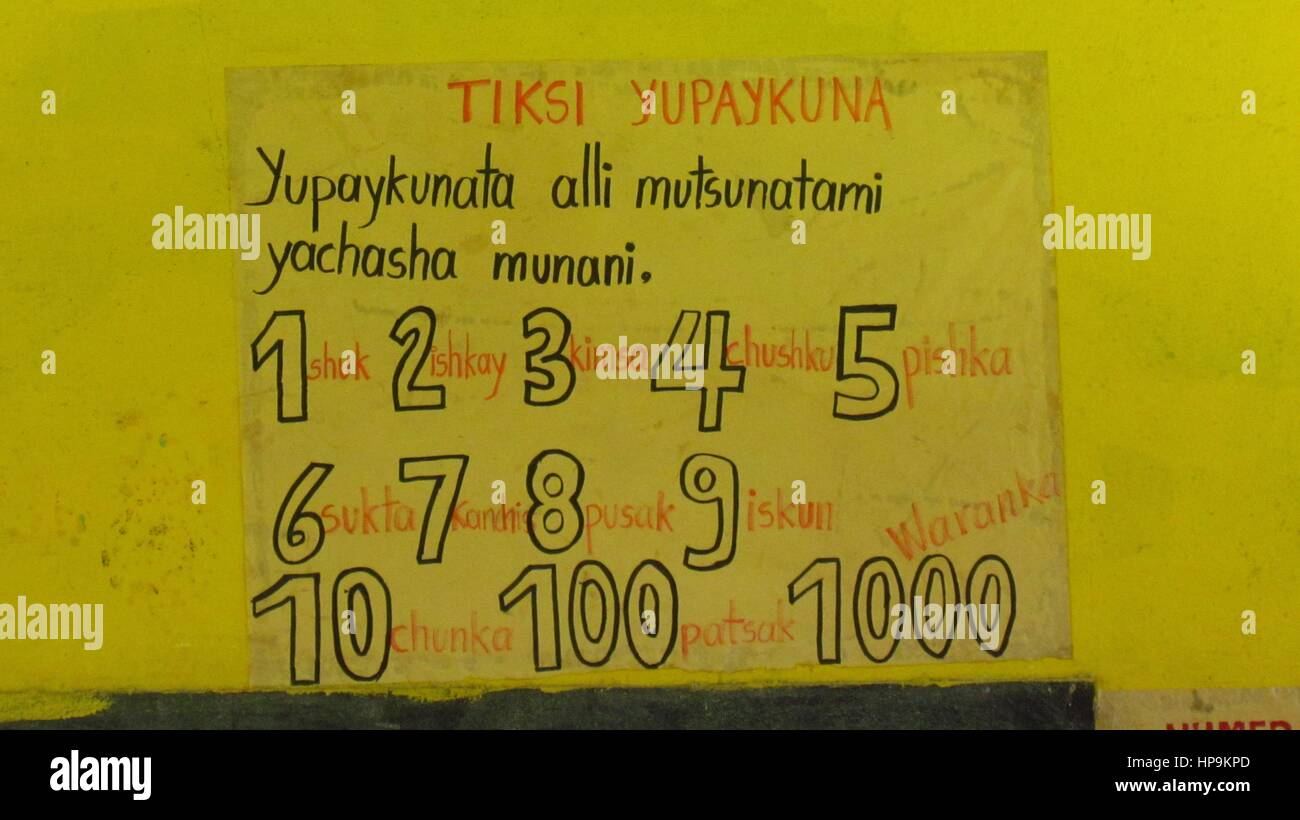 TIKSI YUPAYKUNA
Yupaykunata alli mutsunatami
yachasha munani.
1 shuk 2 ishkay 3 kimsa 4 chushku 5 pishka
6 sukta 7 kanchis 8 pusak 9 iskun
waranka
10 chunka 100 patsak 1000
alamy stock photo
HP9KPD
www.alamy.com